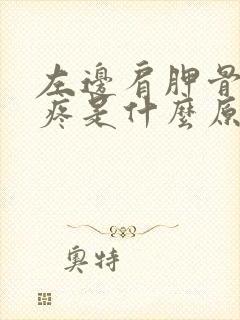 左邊肩胛骨
疼是什麼原
奧特